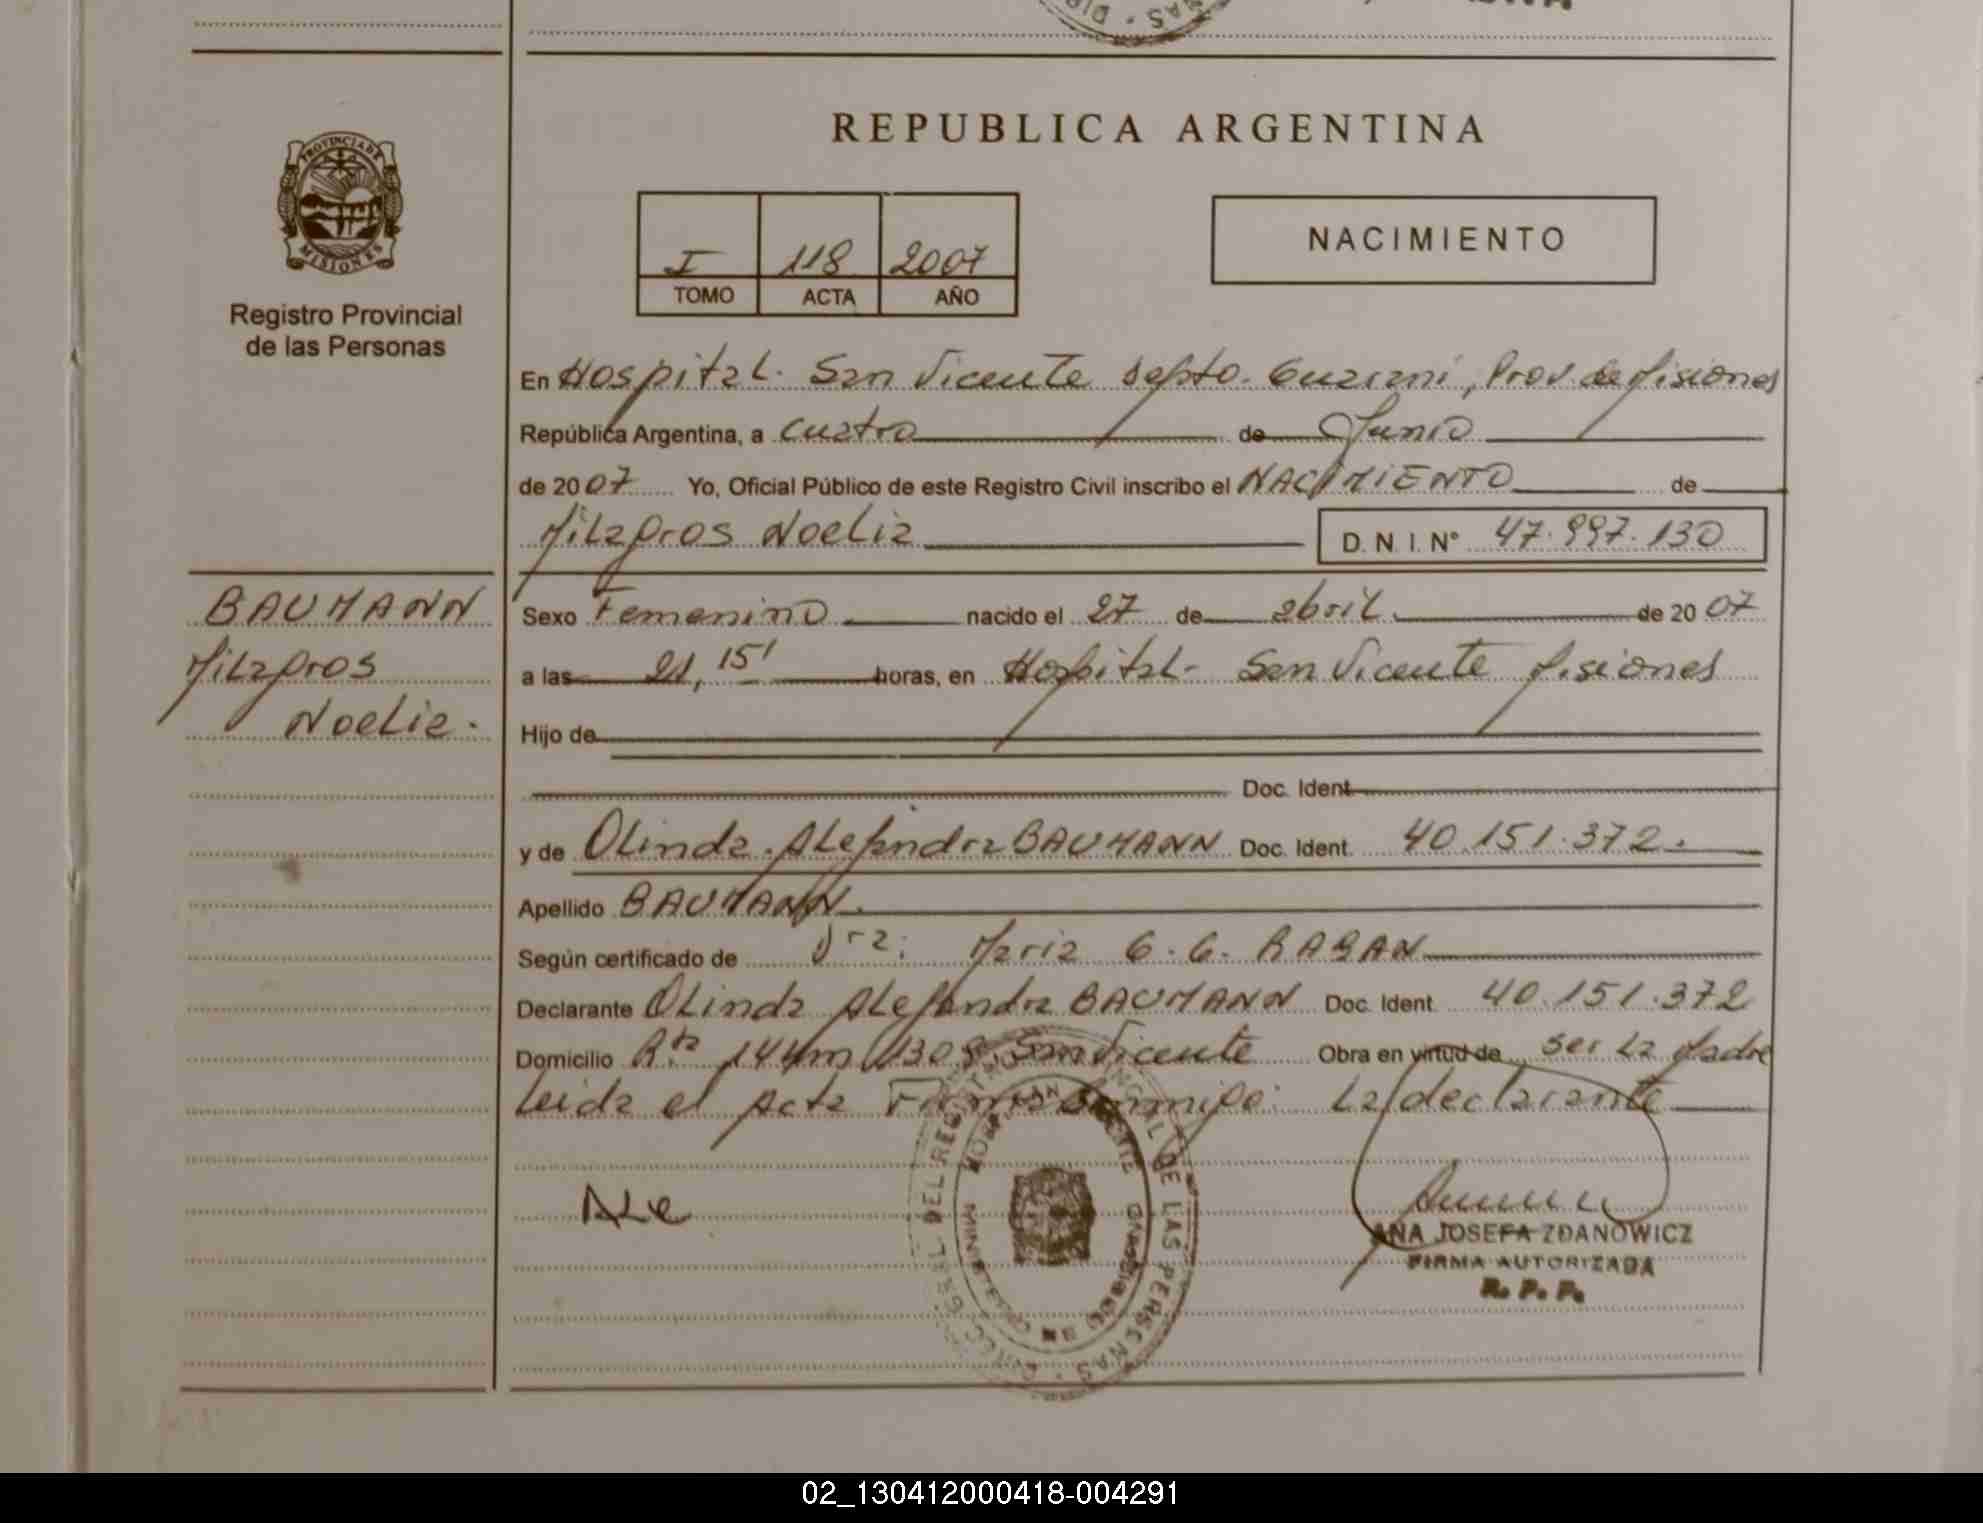 REPUBLICA ARGENTINA
PROVINCIA DE
MISIONES
Registro Provincial
de las Personas
I 118 2007
TOMO ACTA AÑO
NACIMIENTO
En Hospital San Vicente depto. Guarani, Prov de Misiones
República Argentina, a cuatro de Junio
de 2007 Yo, Oficial Público de este Registro Civil inscribo el NACIMIENTO de
Milagros Noelia D. N. I. N° 47.997.130
BAUMANN
Milagros
Noelia.
Sexo Femenino nacido el 27 de abril de 2007
a las 21,15' horas, en Hospital- San Vicente Misiones
Hijo de
Doc. Ident
y de Olinda Alejandra BAUMANN Doc. Ident. 40.151.372.
Apellido BAUMANN.
Según certificado de Dra: Maria G. G.
Declarante Olinda Alejandra BAUMANN Doc. Ident. 40.151.372
Domicilio San Vicente Obra en virtud de ser la Madre
Leida el Acta Firma conmigo: La declarante
ALe
ANA JOSEFA ZDANOWICZ
FIRMA AUTORIZADA
R. P. P.
DEL REGISTRO DE LAS PERSONAS
02_130412000418-004291